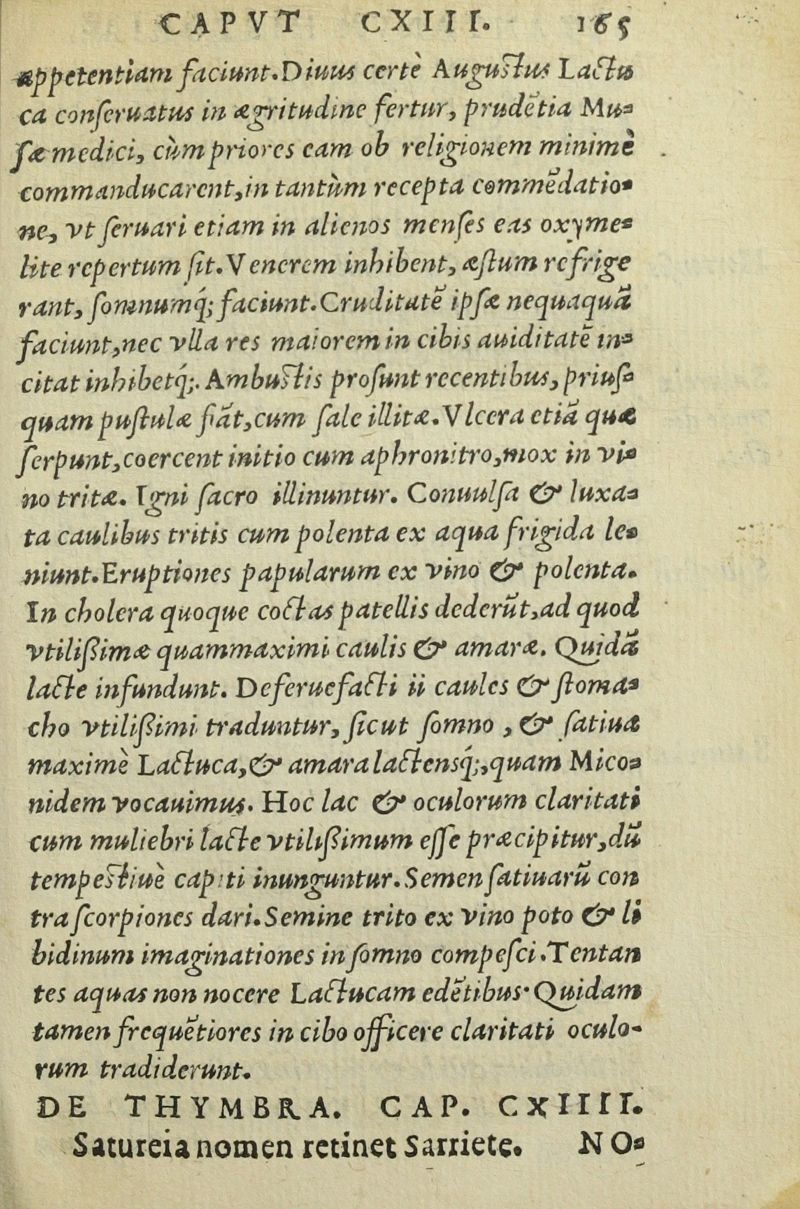 CAPVT CXIII. 165
appetentiam faciunt. Diuus certè Augustus Lactu
ca conseruatus in ægritudine fertur, prudẽtia Mu-
sæ medici, cùm priores eam ob religionem minimè
commanducarent, in tantùm recepta commẽdatio-
ne, vt seruari etiam in alienos menses eas oxyme-
lite repertum sit. Venerem inhibent, æstum refrige
rant, somnumq́; faciunt. Cruditatẽ ipsæ nequaquã
faciunt, nec vlla res maiorem in cibis auiditatẽ in-
citat inhibetq́;. Ambustis prosunt recentibus, prius-
quam pustulæ fiãt, cum sale illitæ. Vlcera etiã quæ
serpunt, coercent initio cum aphronitro, mox in vi-
no tritæ. Igni sacro illinuntur. Conuulsa & luxa-
ta caulibus tritis cum polenta ex aqua frigida le-
niunt. Eruptiones papularum ex vino & polenta.
In cholera quoque coctas patellis dederũt, ad quod
vtilißimæ quammaximi caulis & amaræ. Quidã
lacte infundunt. Deferuefacti ii caules & stoma-
cho vtilißimi traduntur, sicut somno, & satiua
maximè Lactuca, & amara lactensq́;, quam Mico-
nidem vocauimus. Hoc lac & oculorum claritati
cum muliebri lacte vtilißimum esse præcipitur, dũ
tempestiuè capiti inunguntur. Semen satiuarũ con
tra scorpiones dari. Semine trito ex vino poto & li
bidinum imaginationes in somno compesci. Tentan
tes aquas non nocere Lactucam edẽtibus. Quidam
tamen frequẽtiores in cibo officere claritati oculo-
rum tradiderunt.
DE THYMBRA. CAP. CXIIII.
Satureia nomen retinet Sarriete. NO-